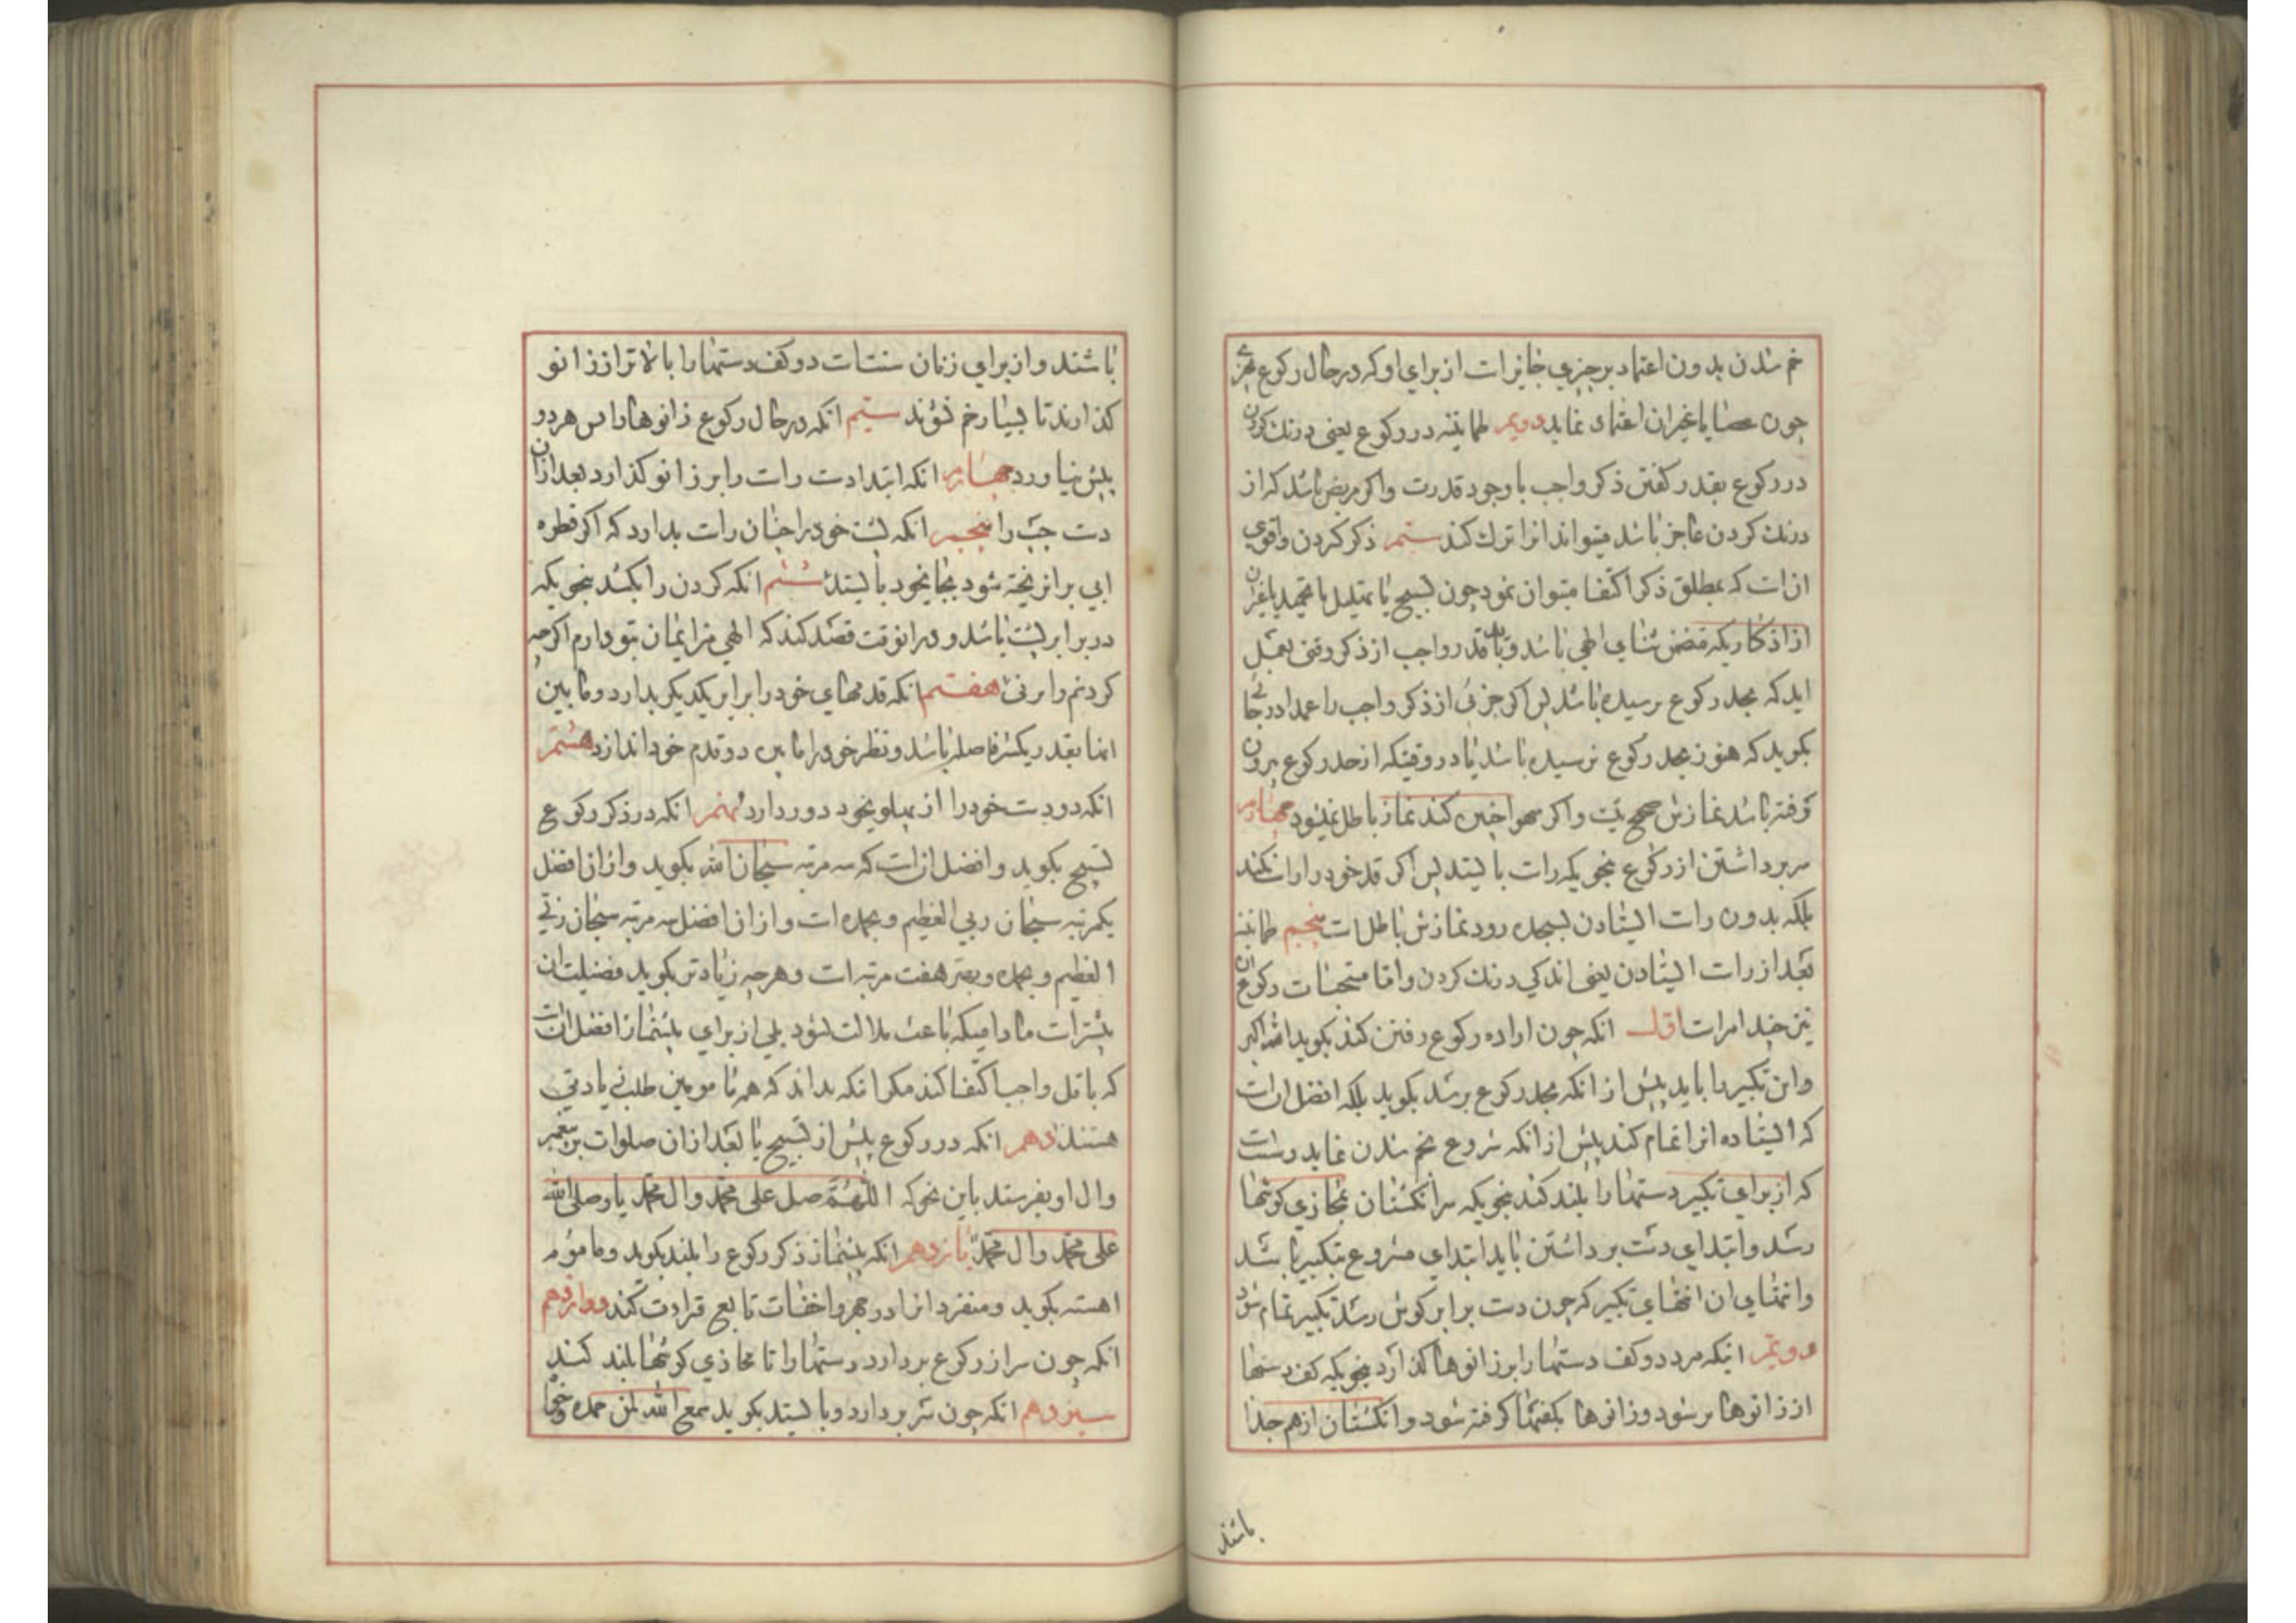 خم شدن بدون اعتماد بر چیزی جایز است از برای او که در حال رکوع بر چیزی
چون عصا یا غیر ان اعتماد نماید دویم طمانینه در رکوع یعنی درنك کردن
در رکوع بقدر کفتن ذکر واجب با وجود قدرت و اکر مریض باشد که از
درنك کردن عاجز باشد میتواند انرا ترك کند سیم ذکر کردن و اقوی
ان است که بمطلق ذکر اکتفا میتوان نمود چون تسبیح یا تهلیل یا تحمید یا غیر ان
از اذکاریکه متضمن ثنای الهی باشد و باید قدر واجب از ذکر وقتی بعمل
اید که بحد رکوع رسیده باشد پس اکر جزئی از ذکر واجب را عمدا در جائی
بکوید که هنوز بحد رکوع نرسیده باشد یا در وقتیکه از حد رکوع بیرون
رفته باشد نمازش صحیح نیست و اکر سهوا چنین کند نماز باطل نمیشود چهارم
سر برداشتن از رکوع بنحویکه راست بایستد پس اکر قد خود را راست نکند
بلکه بدون راست ایستادن بسجده رود نمازش باطل است پنجم طمانینه
بعد از راست ایستادن یعنی اندکی درنك کردن و اما مستحبات رکوع ان
نیز چند امر است اول انکه چون اراده رکوع رفتن کند بکوید الله اکبر
و این تکبیر را باید پیش از انکه بحد رکوع برسد بکوید بلکه افضل ان است
که ایستاده انرا تمام کند پیش از انکه شروع بخم شدن نماید و سنت است
که از برای تکبیر دستها را بلند کند بنحویکه سر انکشتان بمحاذی کوشها
رسد و ابتدای دست برداشتن باید ابتدای شروع بتکبیر باشد
و انتهای ان انتهای تکبیر که چون دست برابر کوش رسد تکبیر تمام شود
دویم انیکه مرد دو کف دستها را بر زانوها کذارد بنحویکه کف دستها
از زانوها پر شود و زانوها بکفتها کرفته شود و انکشتان از هم جدا
باشند
باشند و از برای زنان سنت است دو کف دستها را بالاتر از زانو
کذارند تا بسیار خم نشوند سیم انکه در حال رکوع زانوها را پس برد و
پیش نیاورد چهارم انکه ابتدا دست راست را بر زانو کذارد بعد از ان
دست چپ را پنجم انکه پشت خود را چنان راست بدارد که اکر قطره
ابی بر ان ریخته شود بجای خود بایستد ششم انکه کردن را بکشد بنحویکه
در برابر پشت باشد و در انوقت قصد کند که الهی من ایمان بتو دارم اکر چه
کردنم را بزنی هفتم انکه قدمهای خود را برابر یکدیکر بدارد و مابین
انها بقدر یکشبر فاصله باشد و نظر خود را مابین دو قدم خود اندازد هشتم
انکه دو دست خود را از پهلوی خود دور دارد نهم انکه در ذکر رکوع
تسبیح بکوید و افضل ان است که سه مرتبه سبحان الله بکوید و از ان افضل
یکمرتبه سبحان ربی العظیم و بحمده است و از ان افضل سه مرتبه سبحان ربی
العظیم و بحمده و بهتر هفت مرتبه است و هر چه زیادتر بکوید فضیلت ان
بیشتر است مادامیکه باعث ملالت نشود بلی از برای پیشنماز افضل ان است
که باقل واجب اکتفا کند مکر انکه بداند که همه مامومین طلب زیادتی
هستند دهم انکه در رکوع پیش از تسبیح یا بعد از ان صلوات بر پیغمبر
و ال او بفرستد باین نحو که اللهم صل علی محمد و ال محمد یا و صلی الله
علی محمد و ال محمد یازدهم انکه پیشنماز ذکر رکوع را بلند بکوید و ماموم
اهسته بکوید و منفرد انرا در جهر و اخفات تابع قراءت کند دوازدهم
انکه چون سر از رکوع بردارد دستها را تا محاذی کوشها بلند کند
سیزدهم انکه چون سر بردارد و بایستد بکوید سمع الله لمن حمده و